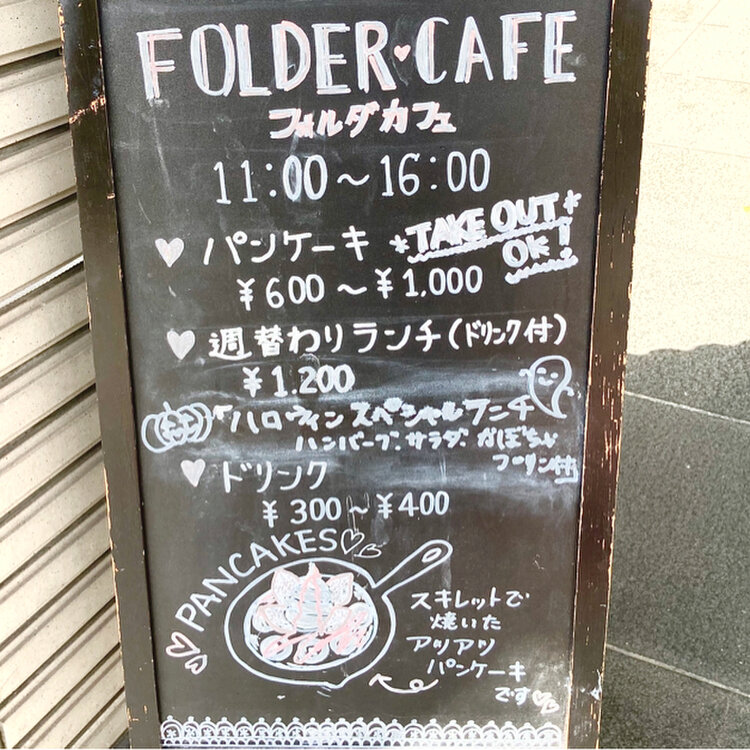 FOLDER♥CAFE
フォルダカフェ
11:00～16:00
♥ パンケーキ
*TAKE OUT*
OK!
¥600～¥1,000
♥ 週替わりランチ(ドリンク付)
¥1.200
ハロウィンスペシャルランチ
ハンバーグ、サラダ、かぼちゃ
プリン付
♥ ドリンク
¥300～¥400
PANCAKES♡♡
スキレットで
焼いた
アツアツ
パンケーキ
です♡♡